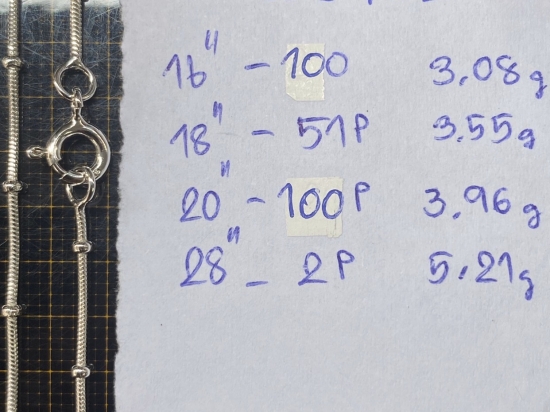 16" - 100 3.08g
18" - 51P 3.55g
20" - 100P 3.96g
28" - 2P 5.21g